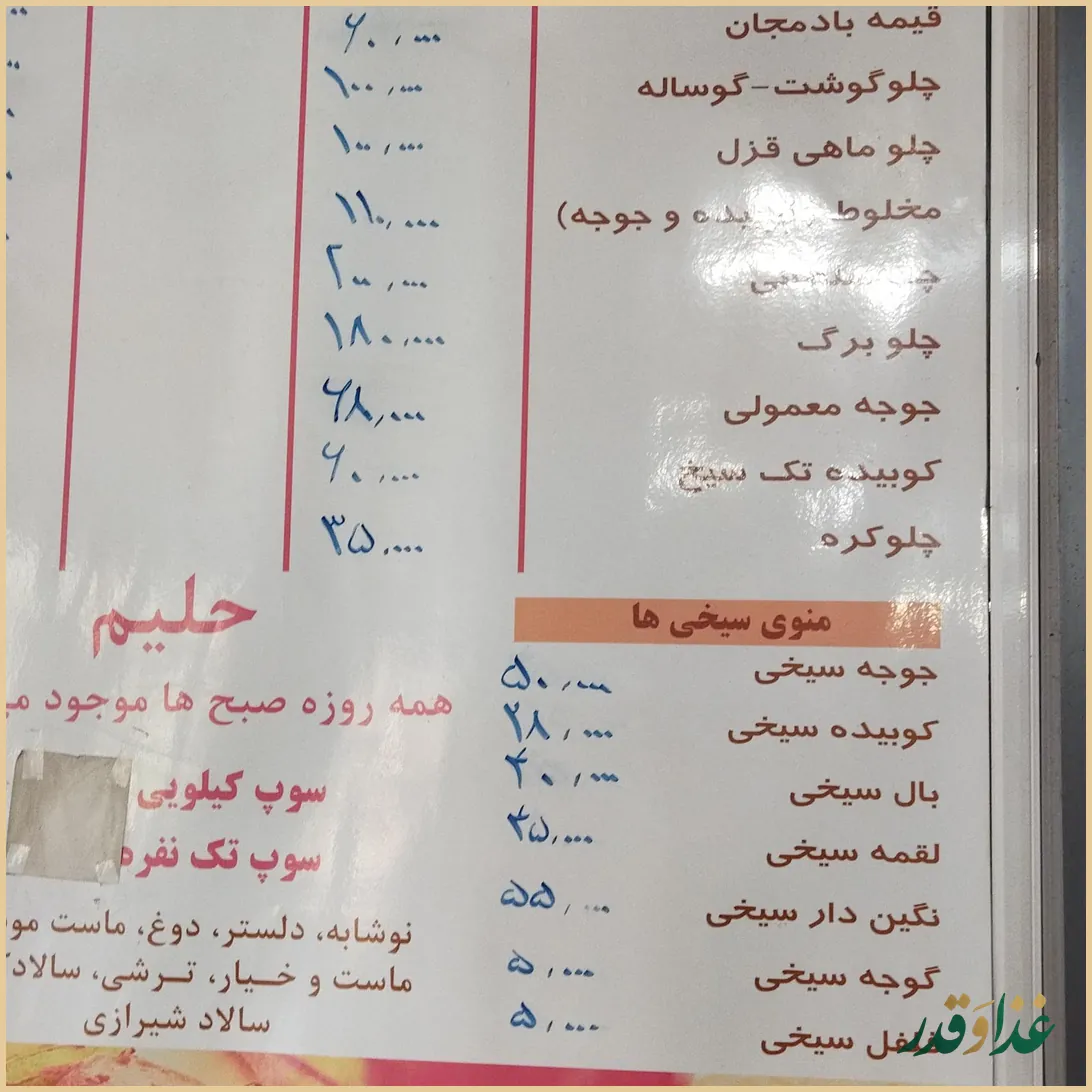 قیمه بادمجان ۶۰,۰۰۰
چلوگوشت-گوساله ۱۰۰,۰۰۰
چلو ماهی قزل ۱۰۰,۰۰۰
مخلوط و جوجه) ۱۱۰,۰۰۰
۲۰۰,۰۰۰
چلو برگ ۱۸۰,۰۰۰
جوجه معمولی ۶۸,۰۰۰
کوبیده تک سیخ ۶۰,۰۰۰
چلوکره ۳۵,۰۰۰
منوی سیخی ها
جوجه سیخی ۵۰,۰۰۰
کوبیده سیخی ۲۸,۰۰۰
بال سیخی ۴۰,۰۰۰
لقمه سیخی ۴۵,۰۰۰
نگین دار سیخی ۵۵,۰۰۰
گوجه سیخی ۵,۰۰۰
فلفل سیخی ۵,۰۰۰
حلیم
همه روزه صبح ها موجود
سوپ کیلویی
سوپ تک نفره
نوشابه، دلستر، دوغ، ماست
ماست و خیار، ترشی، سالاد
سالاد شیرازی
غذا و قدر